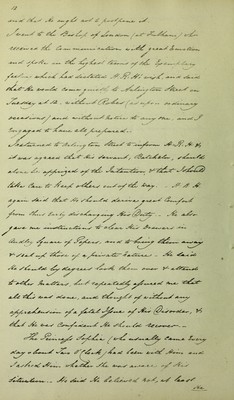 and that He ought not to postpone it.
I went to the Bishop of London (at Fulham) who
received the communication with great emotion
and spoke in the highest terms of the
feeling which had dictated H.R.H's wish, and said
that He would come quietly to Arlington Street on
Tuesday at 12. without Robes (as upon ordinary
occasions) and without notice to any one, and I
engaged to have all prepared.
I returned to Arlington Street to inform H.R.H. &
it was agreed that his servant, Batchelor, should
alone be apprized of the Intention & that I should
take Care to keep others out of the way. H.R.H.
again said that He should derive great Comfort
from thus early discharging this Duty. He also
gave me instructions to clear His Drawers in
Audley Square of Papers, and to bring them away
& seal up those of a private nature. He said
He should by degrees look them over & attend
to other matters, but repeatedly assured me that
all this was done, and thought of without any
apprehension of a fatal Issue of His Disorder, &
that He was confident He should recover.
The Princess Sophia (who usually came every
day about two O'Clock) had been with Him and
I asked Him whether She was aware of His
Situation. He said He believed not, at least